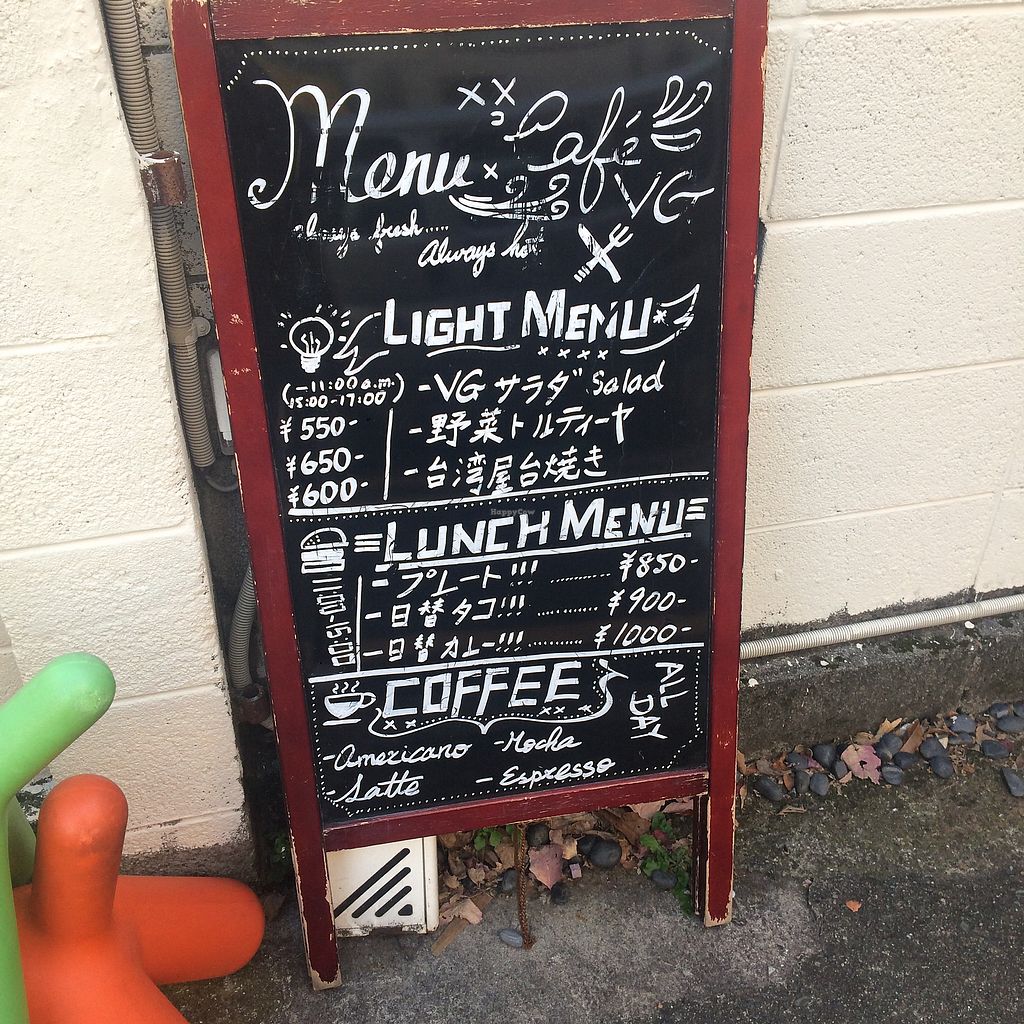 Menu Café
VG
always fresh....
Always hot
LIGHT MENU
(-11:00 a.m.
15:00-17:00)
-VG サラダ Salad
¥550-
-野菜トルティーヤ
¥650-
-台湾屋台焼き
¥600-
HappyCow
LUNCH MENU
11:00-15:00
-プレート!!! .......... ¥850-
-日替タコ!!! .......... ¥900-
-日替カレー!!! .......... ¥1000-
COFFEE
ALL DAY
-Americano -Mocha
-Latte -Espresso